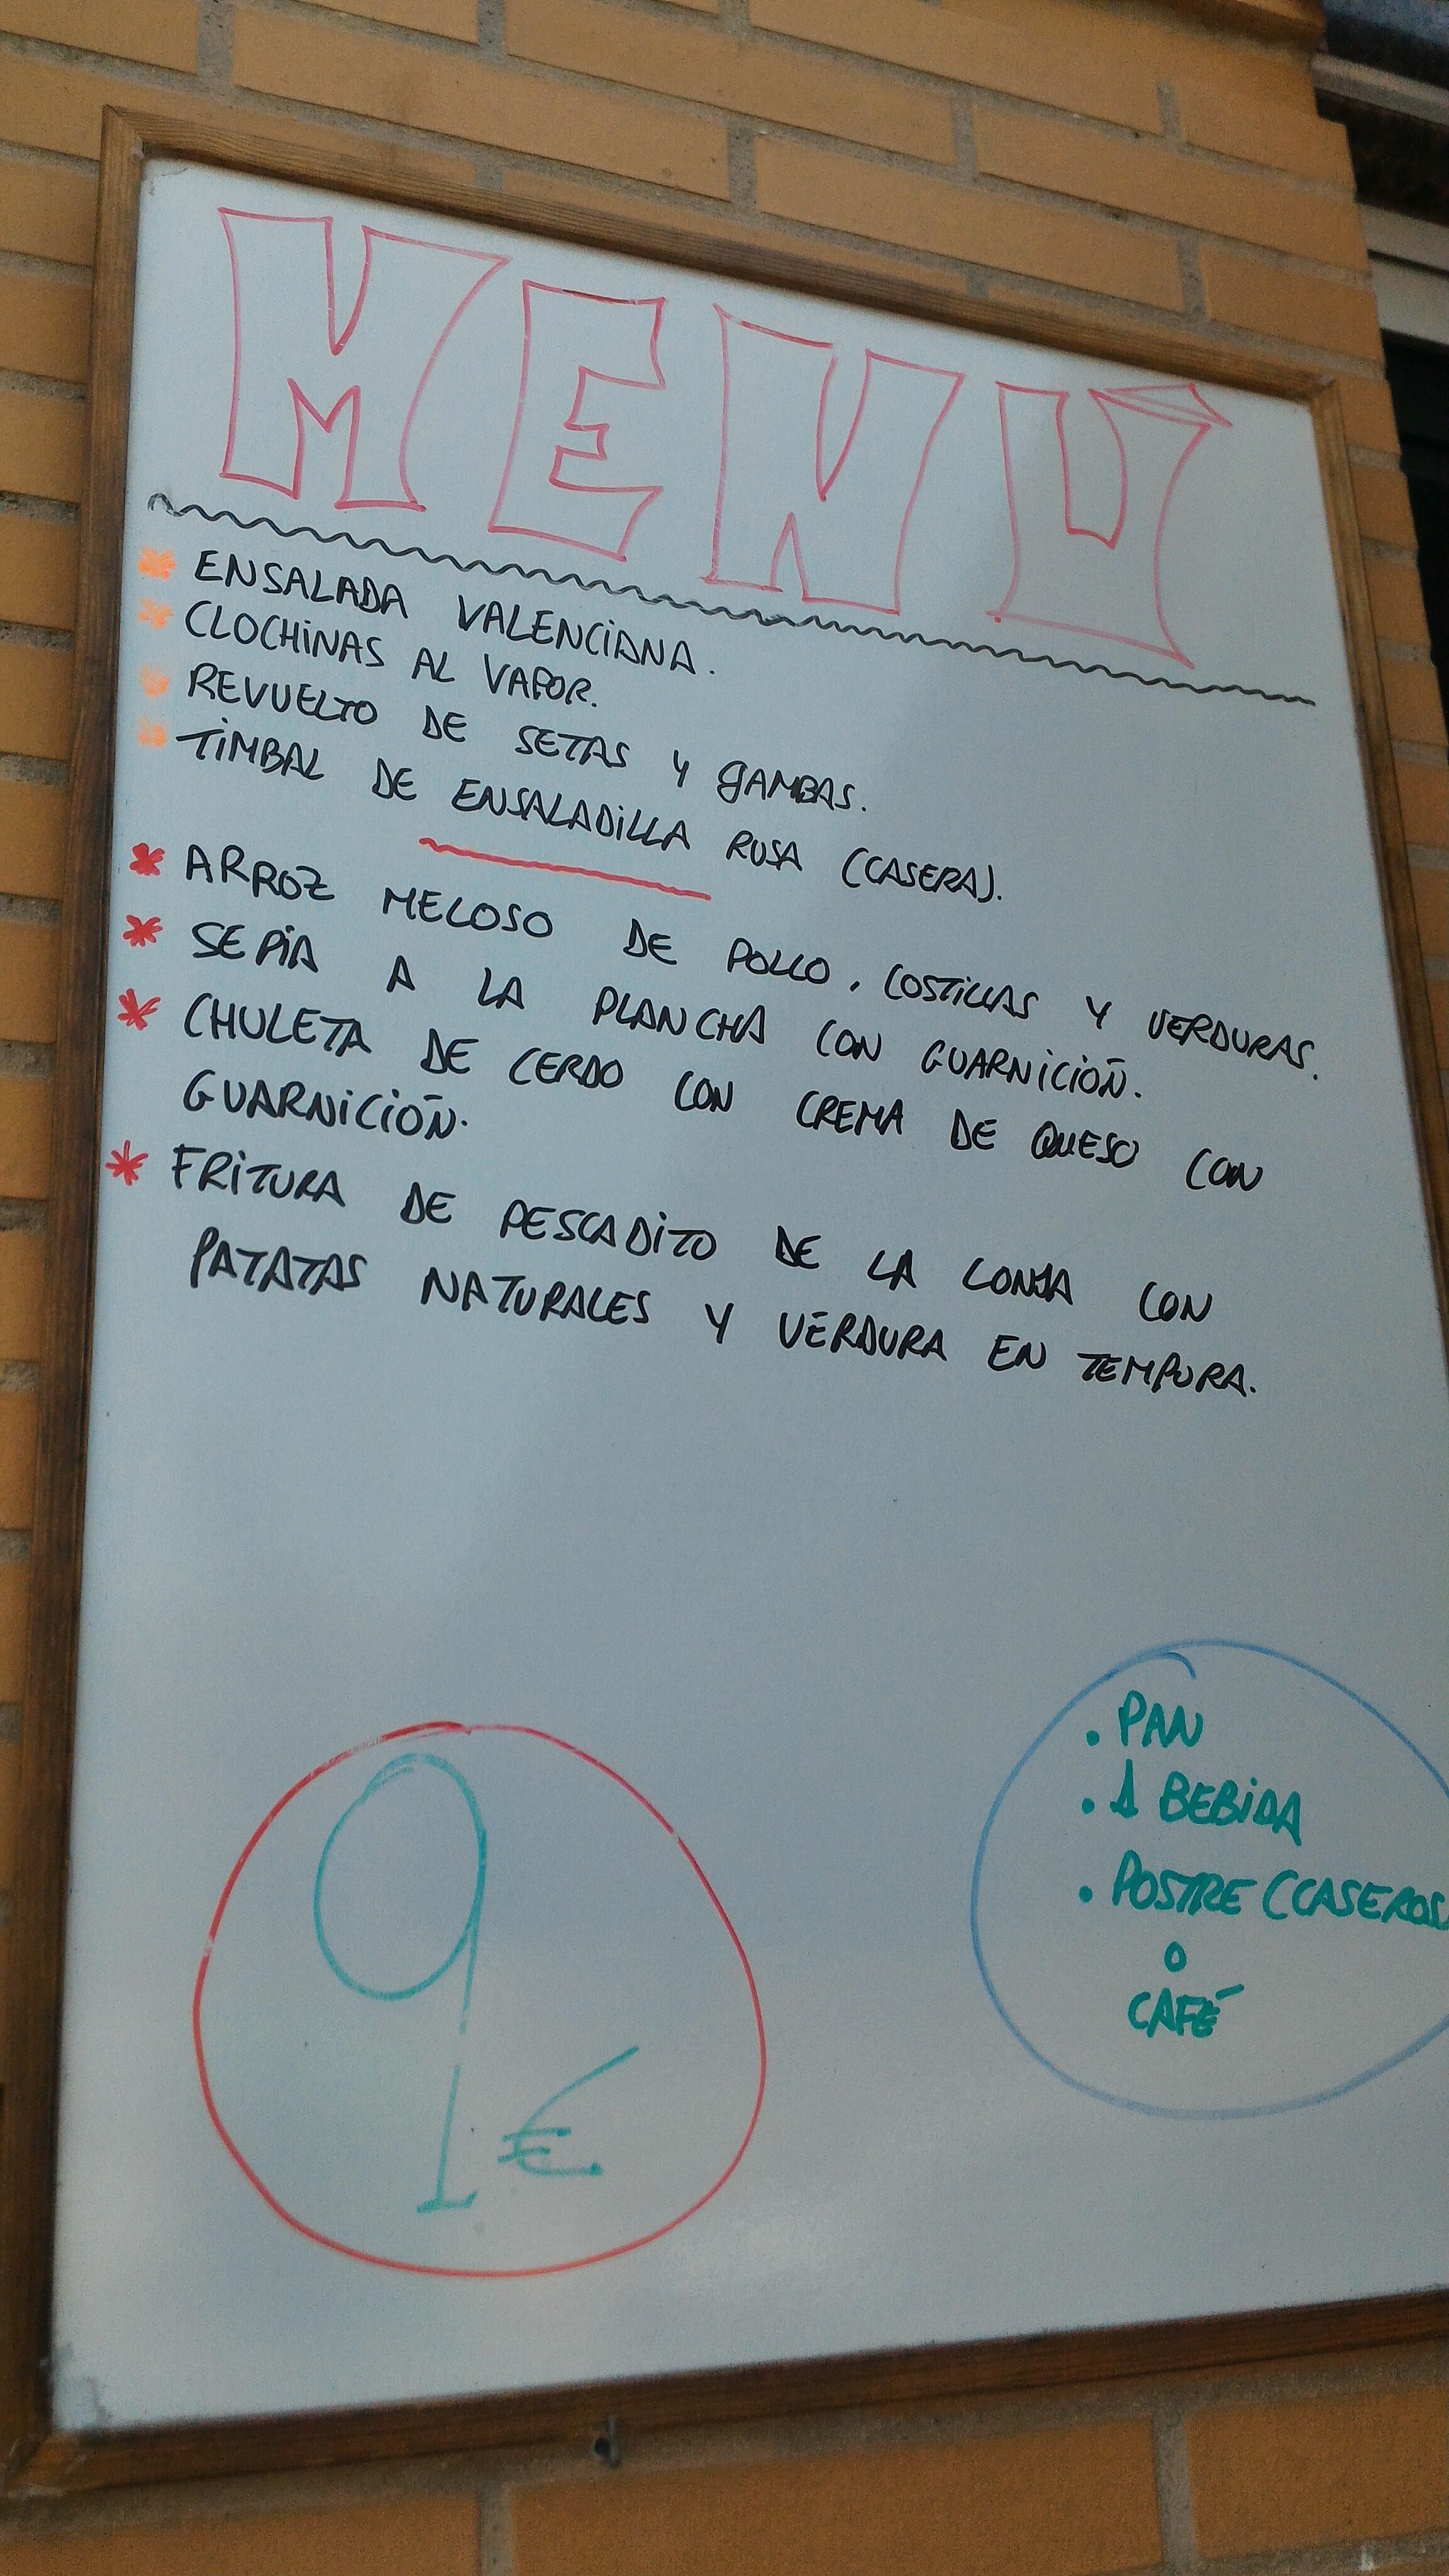 MENÚ
* ENSALADA VALENCIANA.
* CLOCHINAS AL VAPOR.
* REVUELTO DE SETAS Y GAMBAS.
* TIMBAL DE ENSALADILLA RUSA (CASERA).
* ARROZ MELOSO DE POLLO, COSTILLAS Y VERDURAS.
* SEPIA A LA PLANCHA CON GUARNICIÓN.
* CHULETA DE CERDO CON CREMA DE QUESO CON
GUARNICIÓN.
* FRITURA DE PESCADITO DE LA LONJA CON
PATATAS NATURALES Y VERDURA EN TEMPURA.
9 €
• PAN
• 1 BEBIDA
• POSTRE (CASEROS
O
CAFÉ